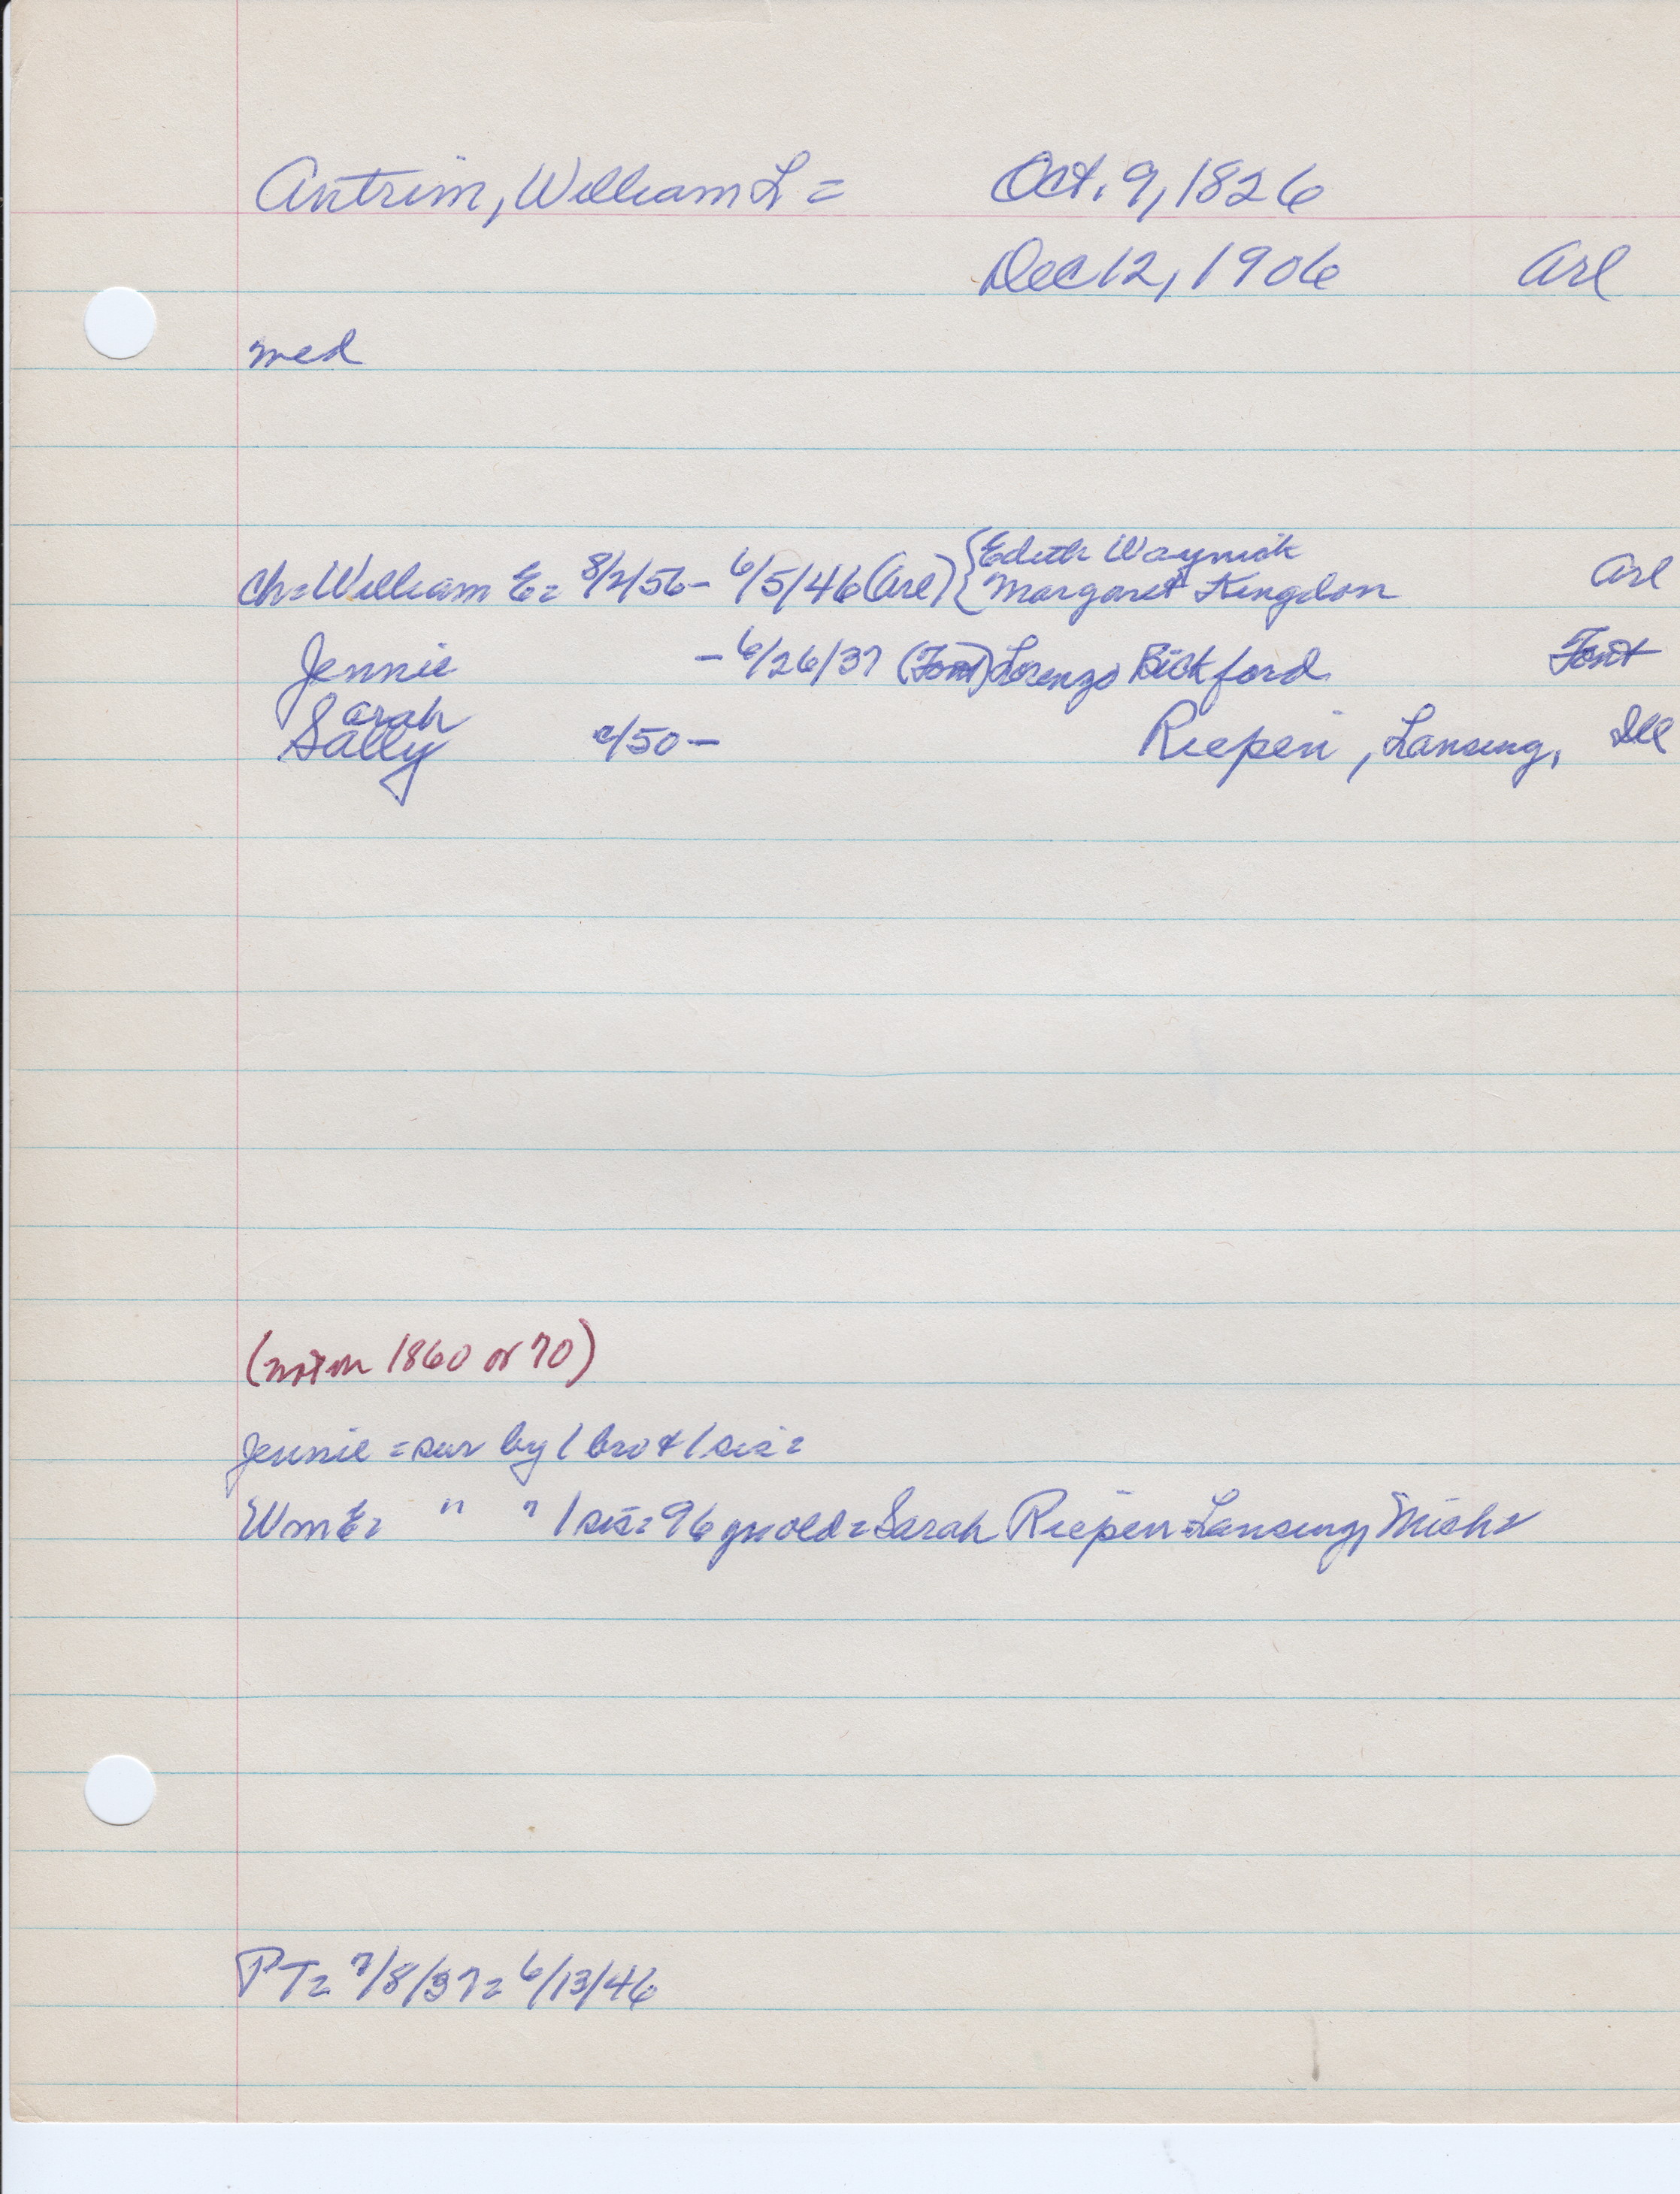 Antrim, William L = Oct. 9, 1826
Dec 12, 1906 Arl
med
ch = William E = 8/2/56 - 6/5/46 (Arl) { Edith Waynick
Margaret Kingdon Arl
Jennie - 6/26/37 (Font) Lorenzo Bickford Font
Sarah
Sally c/50 - Riepen, Lansing, Ill
(not on 1860 or 70)
Jennie = sur by 1 bro & 1 sis =
Wm E = " " 1 sis = 96 yrs old = Sarah Riepen Lansing, Mich =
PT = 7/8/37 = 6/13/46